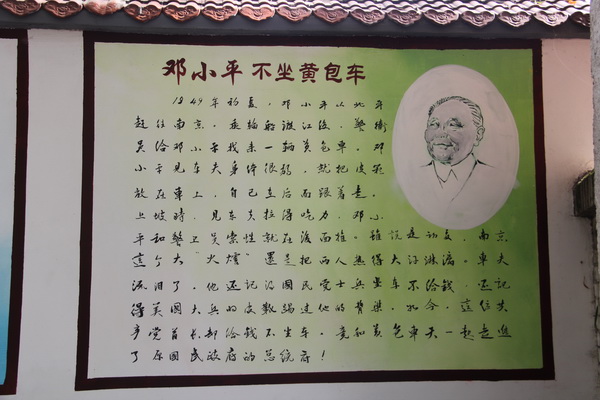 邓小平 不坐黄包车
1949年初夏，邓小平从北平
赶往南京。乘轮船渡江后，警衛
员给邓小平找来一辆黄包车。邓
小平见车夫身体很弱，就把皮箱
放在車上，自己走后面跟着走。
上坡時，见车夫拉得吃力，邓小
平和警卫员索性就在後面推。雖说是初夏，南京
这个大“火爐”還是把两人热得大汗淋漓。車夫
流泪了，他还记得國民党士兵坐车不给錢，还記
得美國大兵的皮靴踢过他的脊梁。如今，這位共
产党首长却给錢不坐车，竟和黄包車夫一起走進
了原國民政府的总统府！